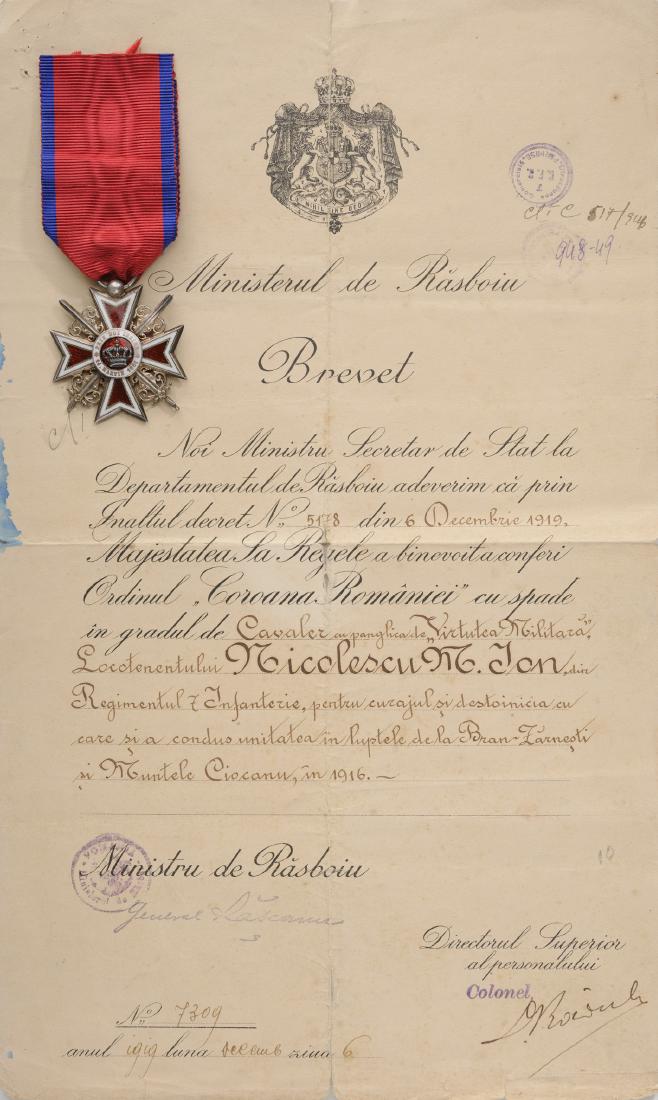 NIHIL SINE DEO
517/946
948-49
Ministerul de Răsboiu
Brevet
Noi Ministru Secretar de Stat la
Departamentul de Răsboiu adeverim că prin
Inaltul decret No. 5178 din 6 Decembrie 1919,
Majestatea Sa Regele a binevoit a conferi
Ordinul „Coroana României” cu spade
în gradul de Cavaler cu panglica de „Virtutea Militară”,
Locotenentului Nicolescu M. Ion, din
Regimentul 7 Infanterie, pentru curajul și destoinicia cu
care și-a condus unitatea în luptele de la Bran-Zărnești
și Muntele Ciocanu, în 1916. —
Ministru de Răsboiu
General Rășcanu
10
Directorul Superior
al personalului
Colonel
No. 7309
anul 1919 luna Decemb ziua 6